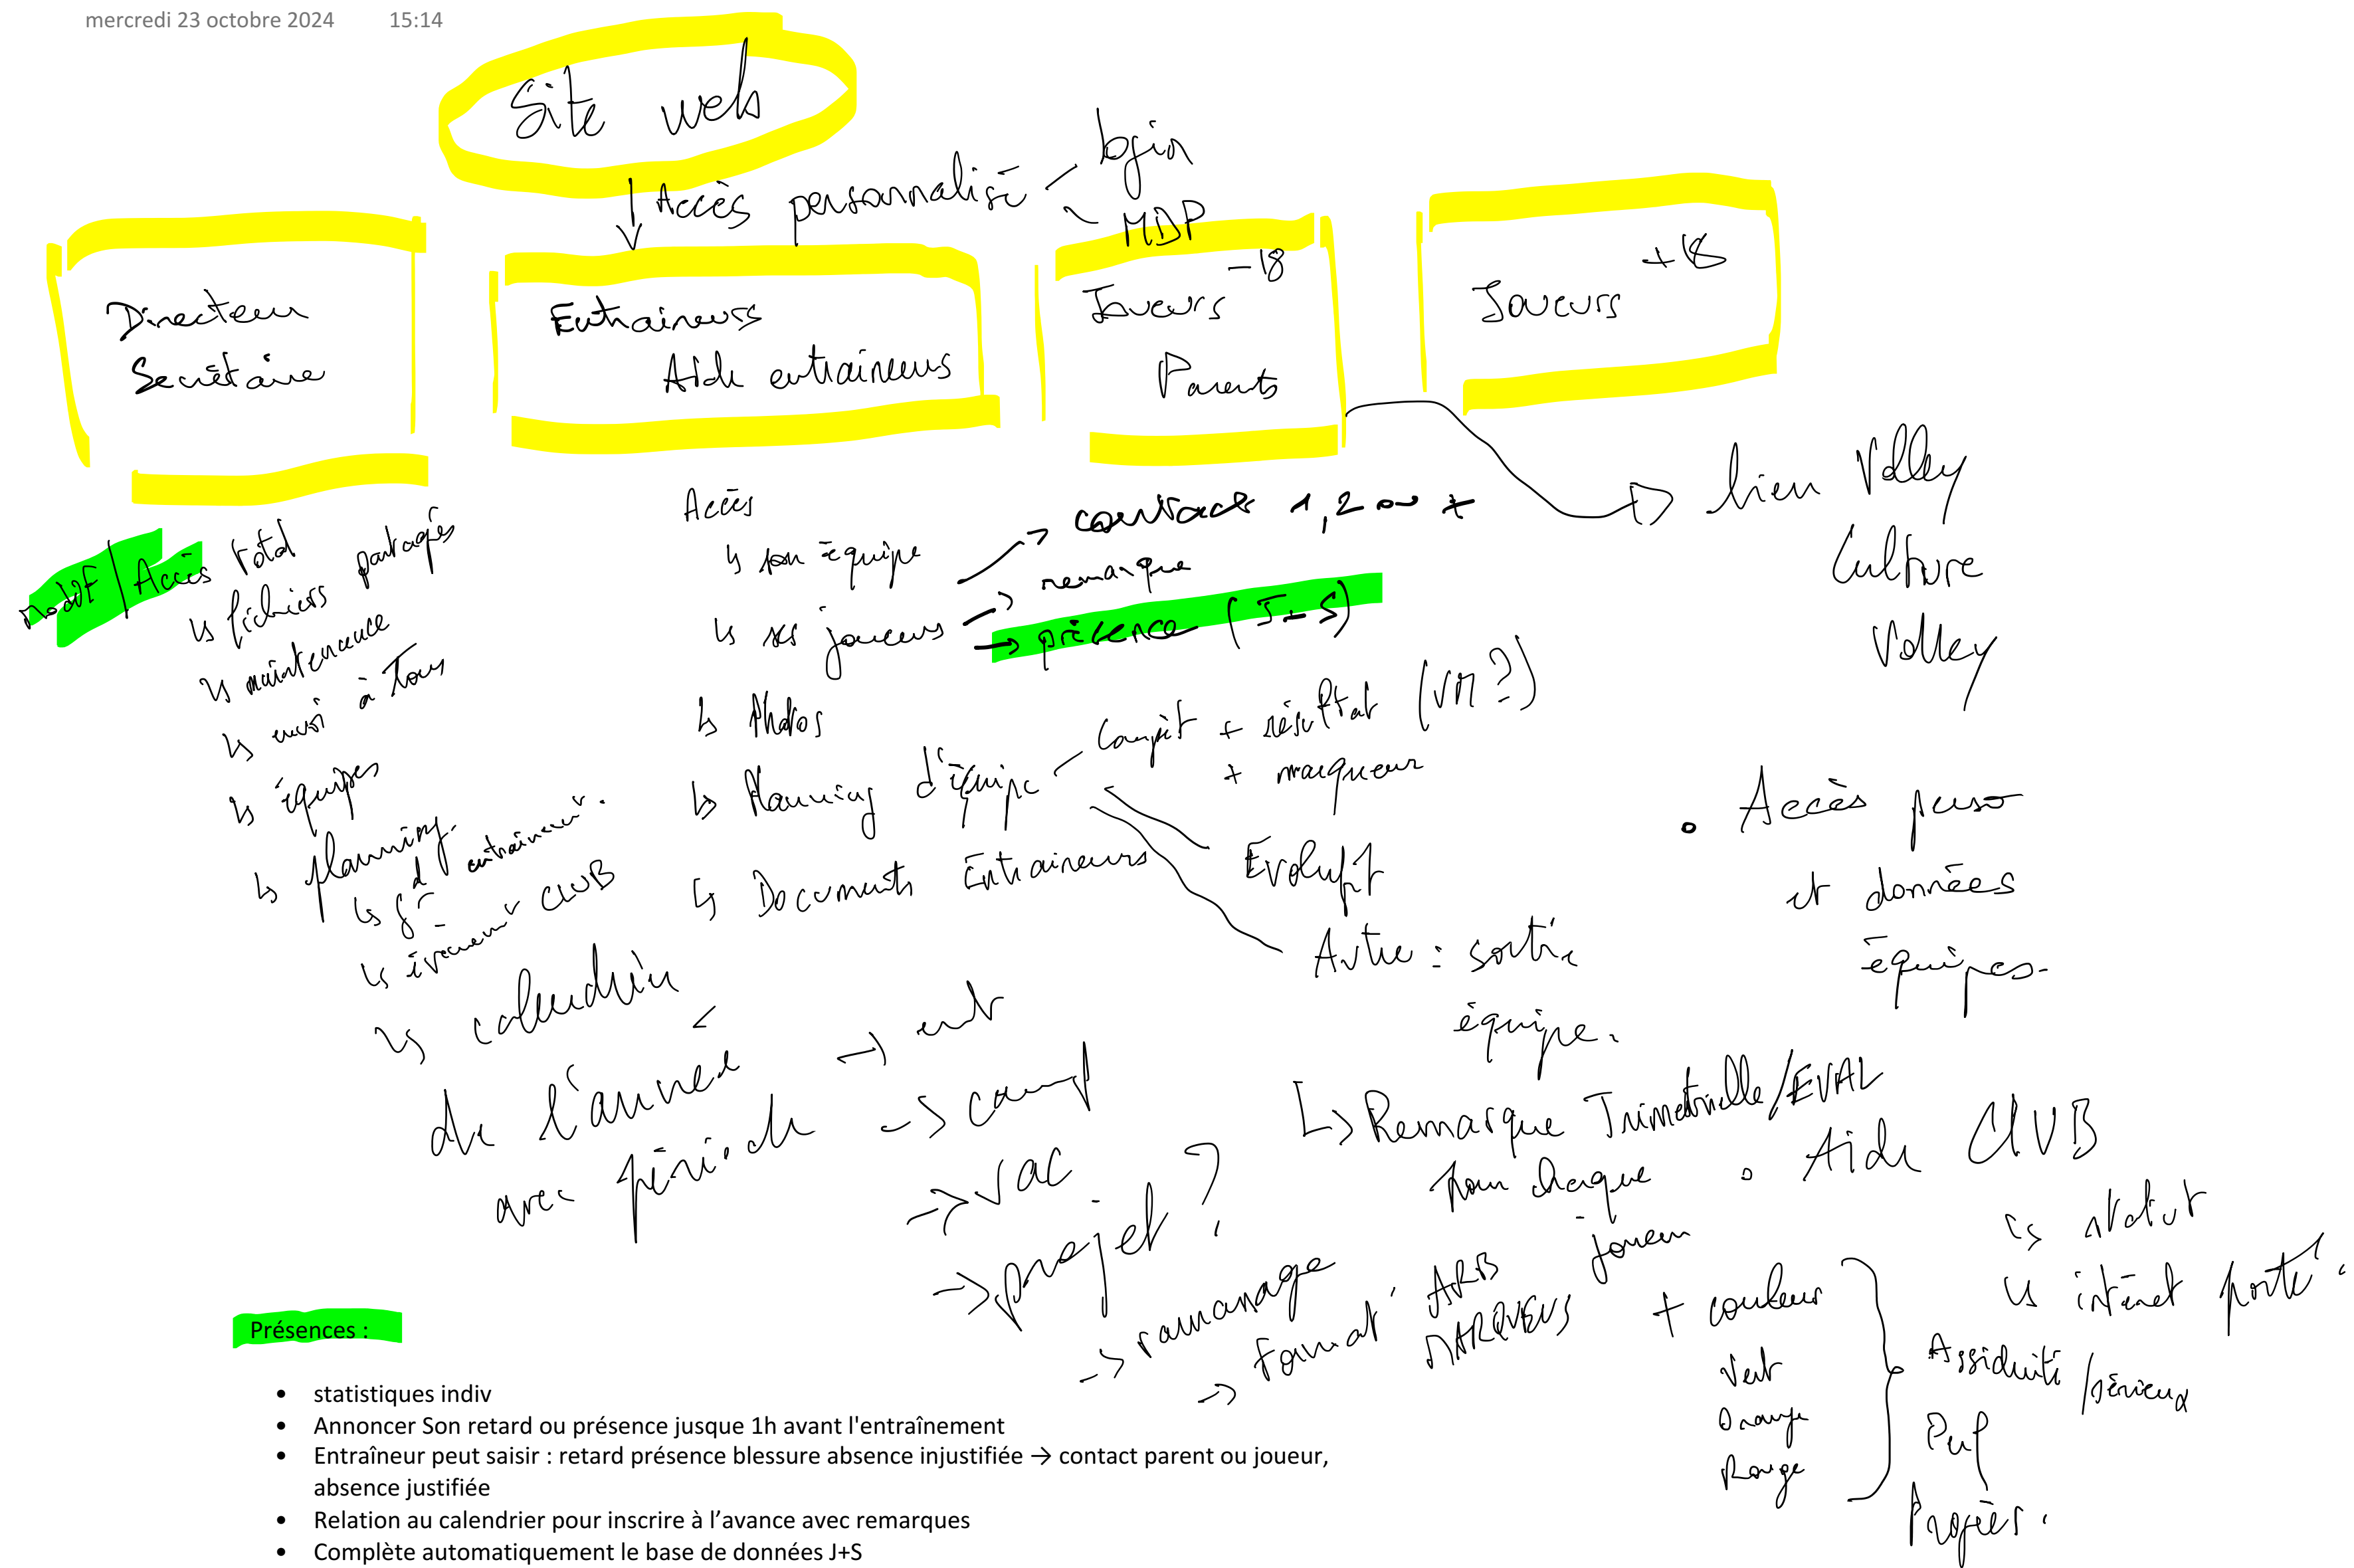 mercredi 23 octobre 2024 15:14
Site web
Accès personnalisé
login
MDP
Directeur
Secrétaire
Entraineurs
Aide entraineurs
Joueurs -18
Parents
Joueurs +18
Modif / Accès total
↳ fichiers partagés
↳ maintenance
↳ envoi à tous
↳ équipes
↳ planning
↳ entrainemt.
↳ évènemt CLUB
↳ calendrier
de l'année
avec période
→ ent
→ camp
→ vac
→ projet ?
→ ramassage
→ Format° ARB
MARQUEURS
Accès
↳ son équipe
↳ ses joueurs
→ contact 1, 2 ou +
→ remarque
→ présence (J+S)
↳ Photos
↳ Planning d'équipe
Compèt + résultat (VM ?)
+ marqueur
Autre : sortie
équipe.
↳ Documents Entraineurs
↳ Remarque Trimestrielle/EVAL
pour chaque
joueur
+ couleur
Vert
Orange
Rouge
Assiduité /sérieux
Perf
Progrès.
→ lien Volley
Culture
Volley
• Accès perso
et données
équipes.
• Aide CLUB
↳ statut
↳ intéret porté.
Présences :
• statistiques indiv
• Annoncer Son retard ou présence jusque 1h avant l'entraînement
• Entraîneur peut saisir : retard présence blessure absence injustifiée → contact parent ou joueur,
absence justifiée
• Relation au calendrier pour inscrire à l’avance avec remarques
• Complète automatiquement le base de données J+S